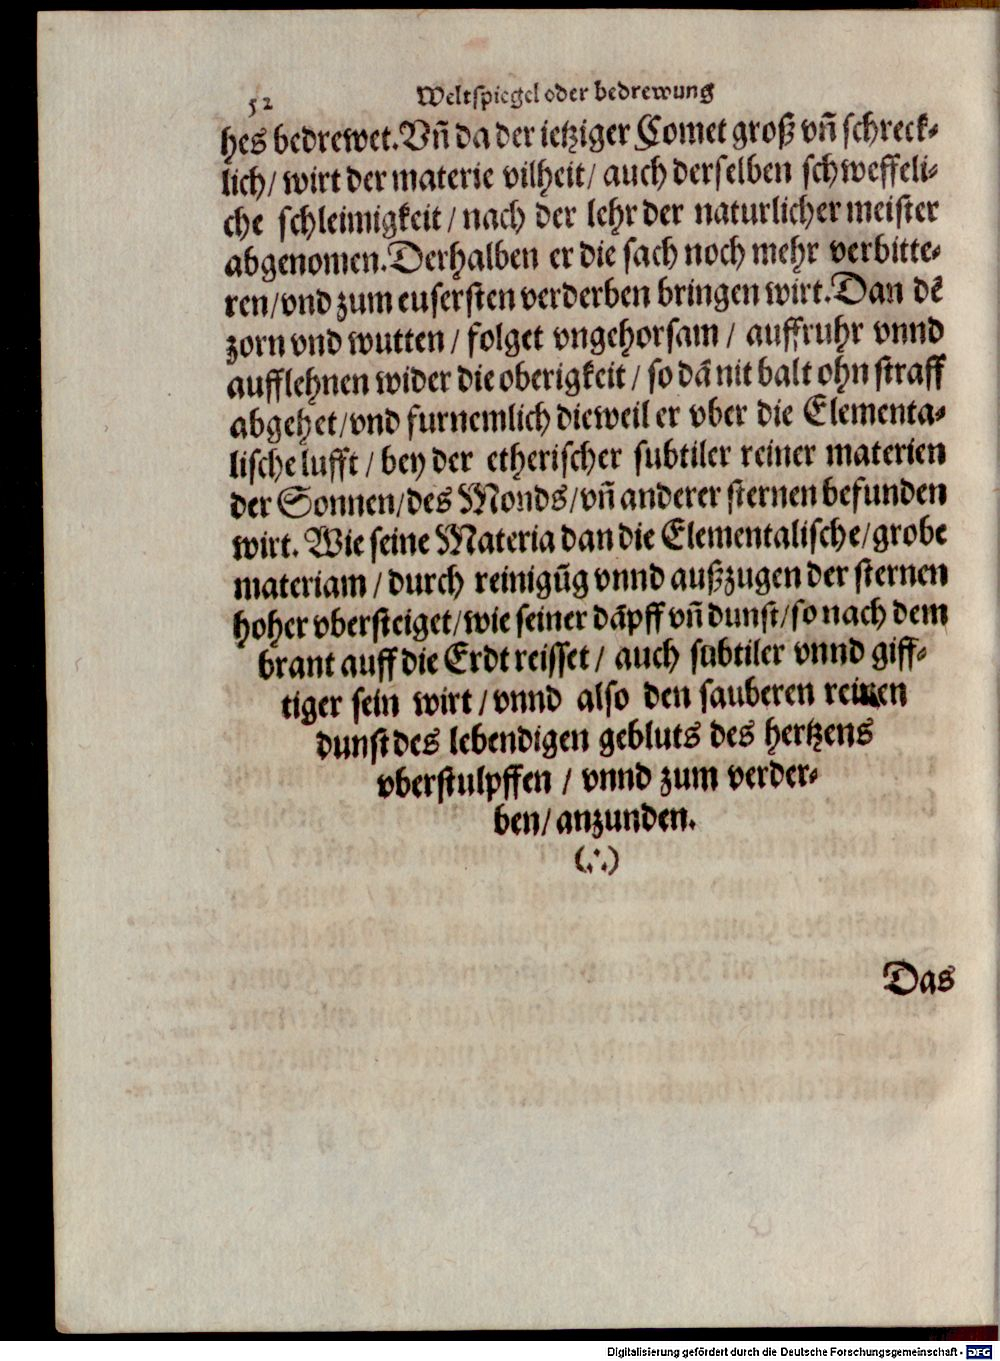 52
Weltspiegel oder bedrewung
hes bedrewet. Vñ da der ietziger Comet groß vñ schreck-
lich/ wirt der materie vilheit/ auch derselben schweffeli-
che schleimigkeit/ nach der lehr der naturlicher meister
abgenomen. Derhalben er die sach noch mehr verbitte-
ren/ vnd zum eusersten verderben bringen wirt. Dan dē
zorn vnd wutten/ folget vngehorsam/ auffruhr vnnd
aufflehnen wider die oberigkeit/ so dā nit balt ohn straff
abgehet/ vnd furnemlich dieweil er vber die Elementa-
lische lufft/ bey der etherischer subtiler reiner materien
der Sonnen/ des Monds/ vñ anderer sternen befunden
wirt. Wie seine Materia dan die Elementalische/ grobe
materiam/ durch reinigūg vnnd außzugen der sternen
hoher vbersteiget/ wie seiner dāpff vñ dunst/ so nach dem
brant auff die Erdt reisset/ auch subtiler vnnd giff-
tiger sein wirt/ vnnd also den sauberen reinen
dunst des lebendigen gebluts des hertzens
vberstulpffen/ vnnd zum verder-
ben/ anzunden.
(∴)
Das
Digitalisierung gefördert durch die Deutsche Forschungsgemeinschaft - DFG